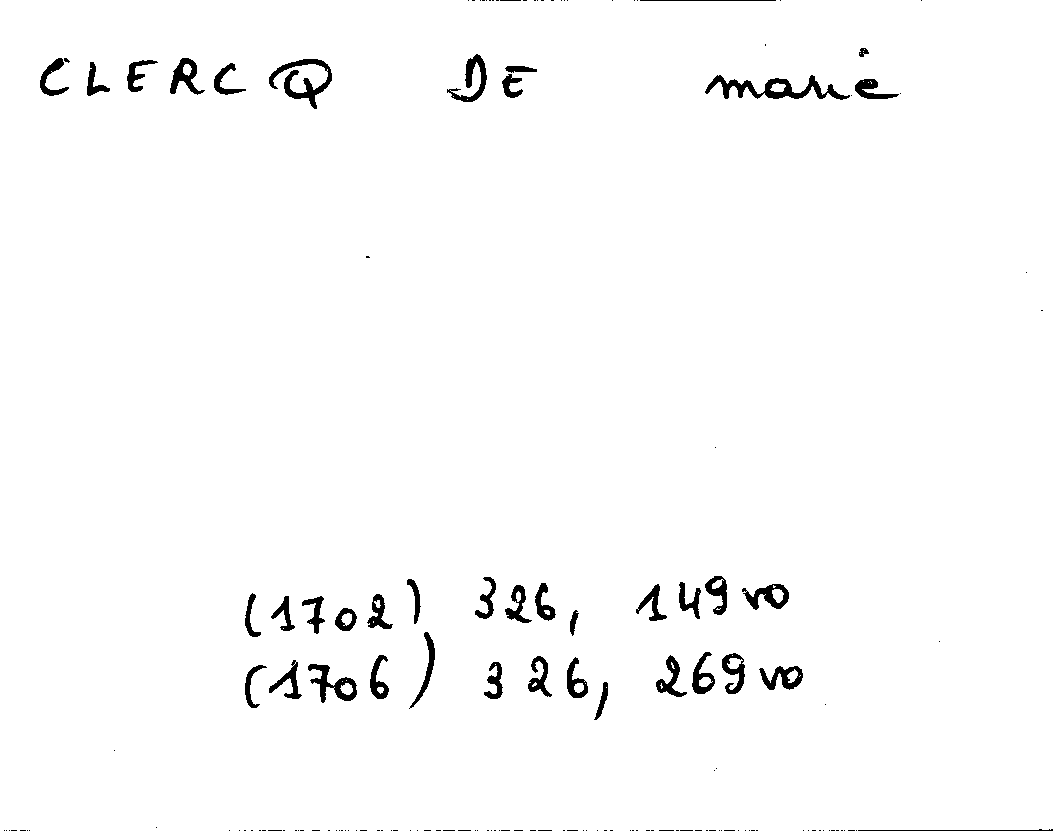 CLERCQ DE marie
(1702) 326, 149vo
(1706) 326, 269vo